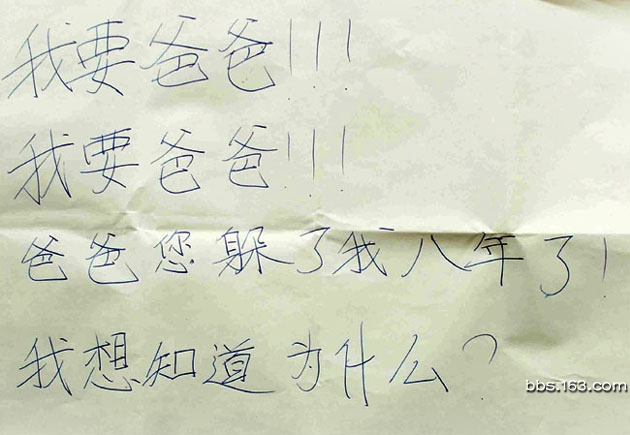 我要爸爸!!!
我要爸爸!!!
爸爸您躲了我八年了!
我想知道为什么?
bbs.163.com